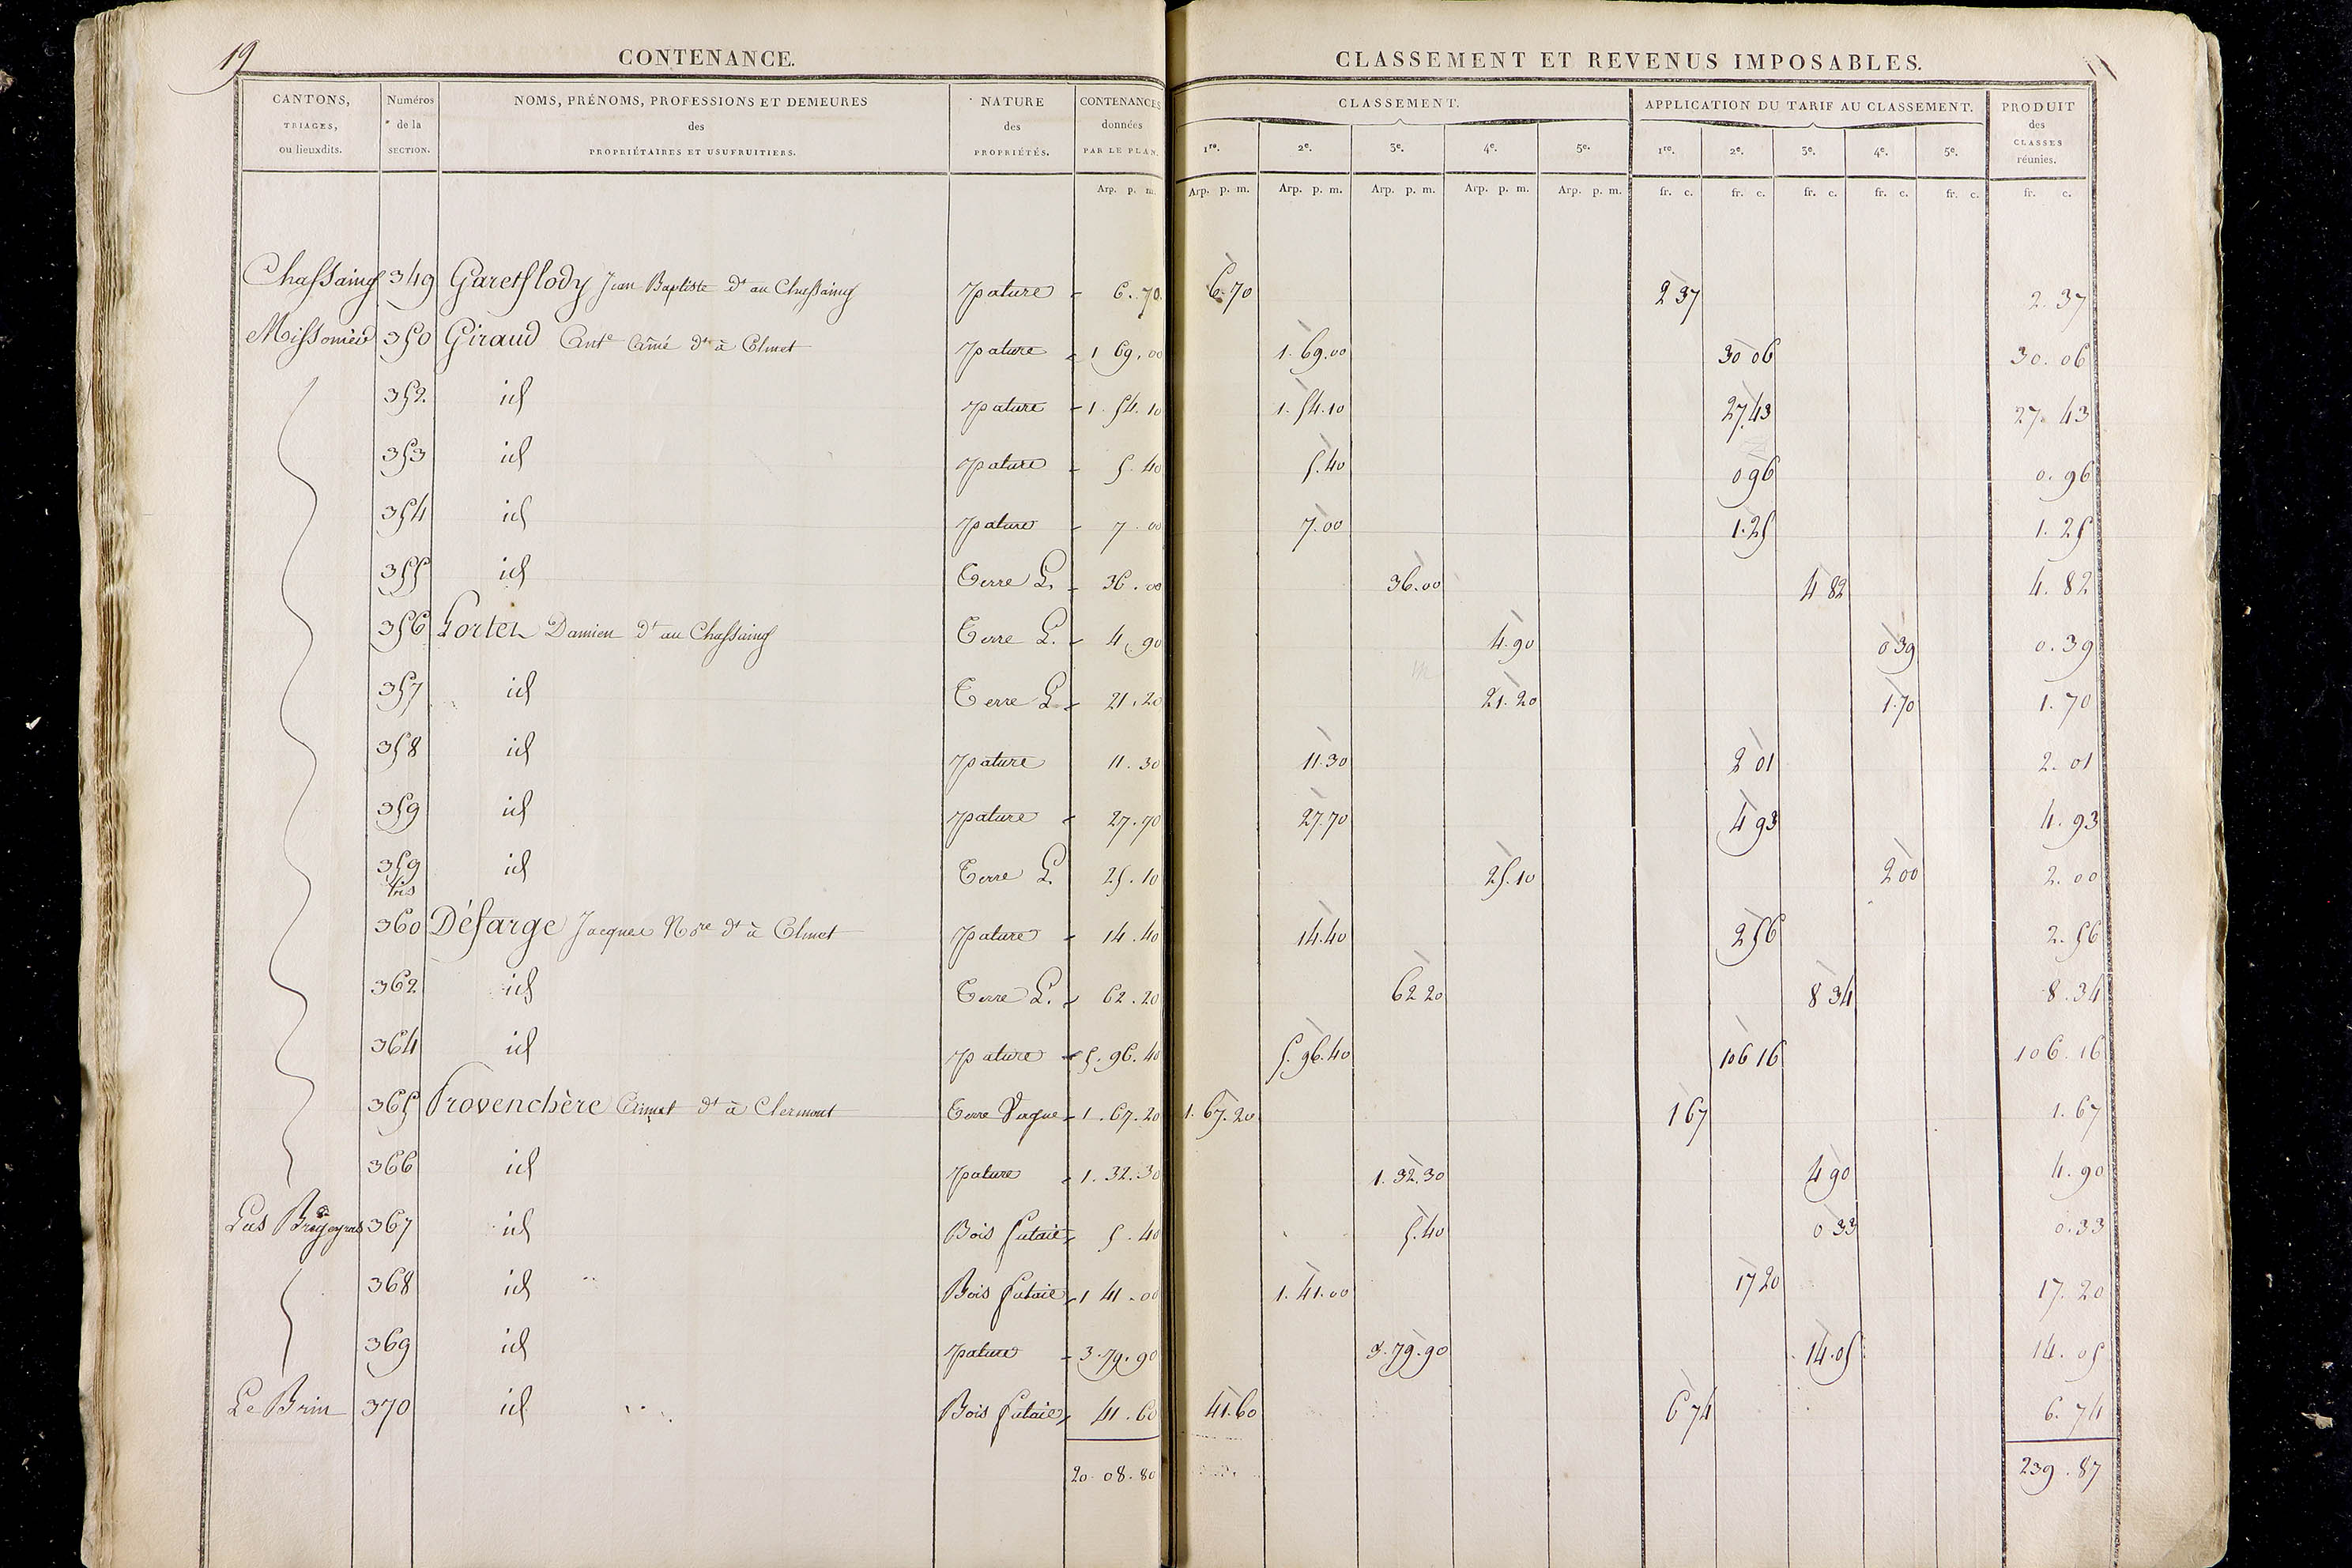 19
CONTENANCE.
CLASSEMENT ET REVENUS IMPOSABLES.
CANTONS, TRIAGES, ou lieuxdits.
Numéros de la SECTION.
NOMS, PRÉNOMS, PROFESSIONS ET DEMEURES des PROPRIÉTAIRES ET USUFRUITIERS.
NATURE des PROPRIÉTÉS.
CONTENANCES données PAR LE PLAN.
CLASSEMENT.
APPLICATION DU TARIF AU CLASSEMENT.
PRODUIT des CLASSES réunies.
1re. 2e. 3e. 4e. 5e. 1re. 2e. 3e. 4e. 5e.
Arp. p. m. Arp. p. m. Arp. p. m. Arp. p. m. Arp. p. m. Arp. p. m. fr. c. fr. c. fr. c. fr. c. fr. c. fr. c.
Chassaing 349 Jean Baptiste dt au Chassaing pature 6.70 6.70 2 37 2.37
350 Giraud Ante dt à Olmet pature 1 69.00 1.69.00 30 06 30.06
352 id pature 1.54.10 1.54.10 27.43 27.43
353 id pature 5.40 5.40 0 96 0.96
354 id pature 7.00 7.00 1.25 1.25
355 id Terre L. 36.00 36.00 4 82 4.82
356 Damien dt au Chassaing Terre L. 4.90 4.90 0 39 0.39
357 id Terre L 21.20 21.20 1.70 1.70
358 id pature 11.30 11.30 2 01 2.01
359 id pature 27.70 27.70 4 93 4.93
359 bis id Terre L 25.10 25.10 2 00 2.00
360 Désarge Jacques Nore dt à Olmet pature 14.40 14.40 2 56 2.56
362 id Terre L. 62.20 62 20 8 34 8.34
364 id pature 5.96.40 5.96.40 106 16 106.16
365 Provenchère dt à Clermont Terre Vague 1.67.20 1.67.20 1 67 1.67
366 id pature 1.32.30 1.32.30 4 90 4.90
Las 367 id Bois futaie 5.40 5.40 0 33 0.33
368 id Bois futaie 1 41.00 1.41.00 17 20 17.20
369 id pature 3.79.90 3.79.90 14.05 14.05
Le Brin 370 id Bois futaie 41.60 41.60 6 74 6.74
20.08.80 239.87